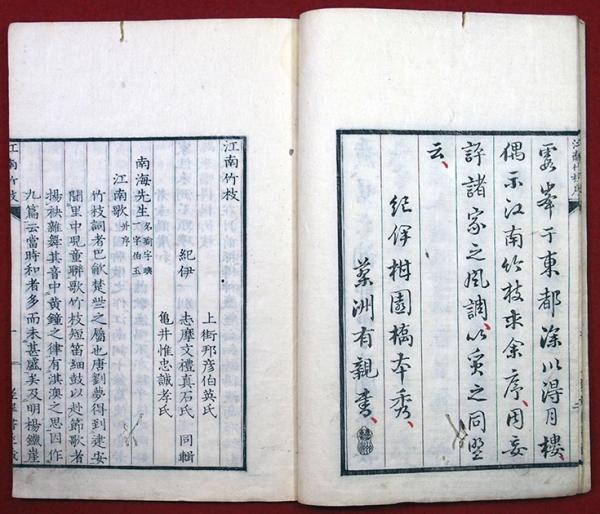 江南竹枝序
峯于東都深川得月樓、
偶示江南竹枝求余序、因妄
評諸家之風調、以質之同盟
云、
紀伊柑園橋本秀、
洲有親書、
江南竹枝
上街邦彦伯英氏
紀伊 志摩文禮真石氏 同輯
亀井惟忠誠孝氏
南海先生 名瑜字璵
一字伯玉
江南歌 并序
竹枝詞者巴歈楚些之屬也唐劉夢得到建安
閭里中見童聯歌竹枝短笛細鼓以赴節歌者
揚袂雎舞其音中黄鐘之律有淇澳之思因作
九篇云當時和者多而未甚盛矣及明楊鐵崖
江南竹枝